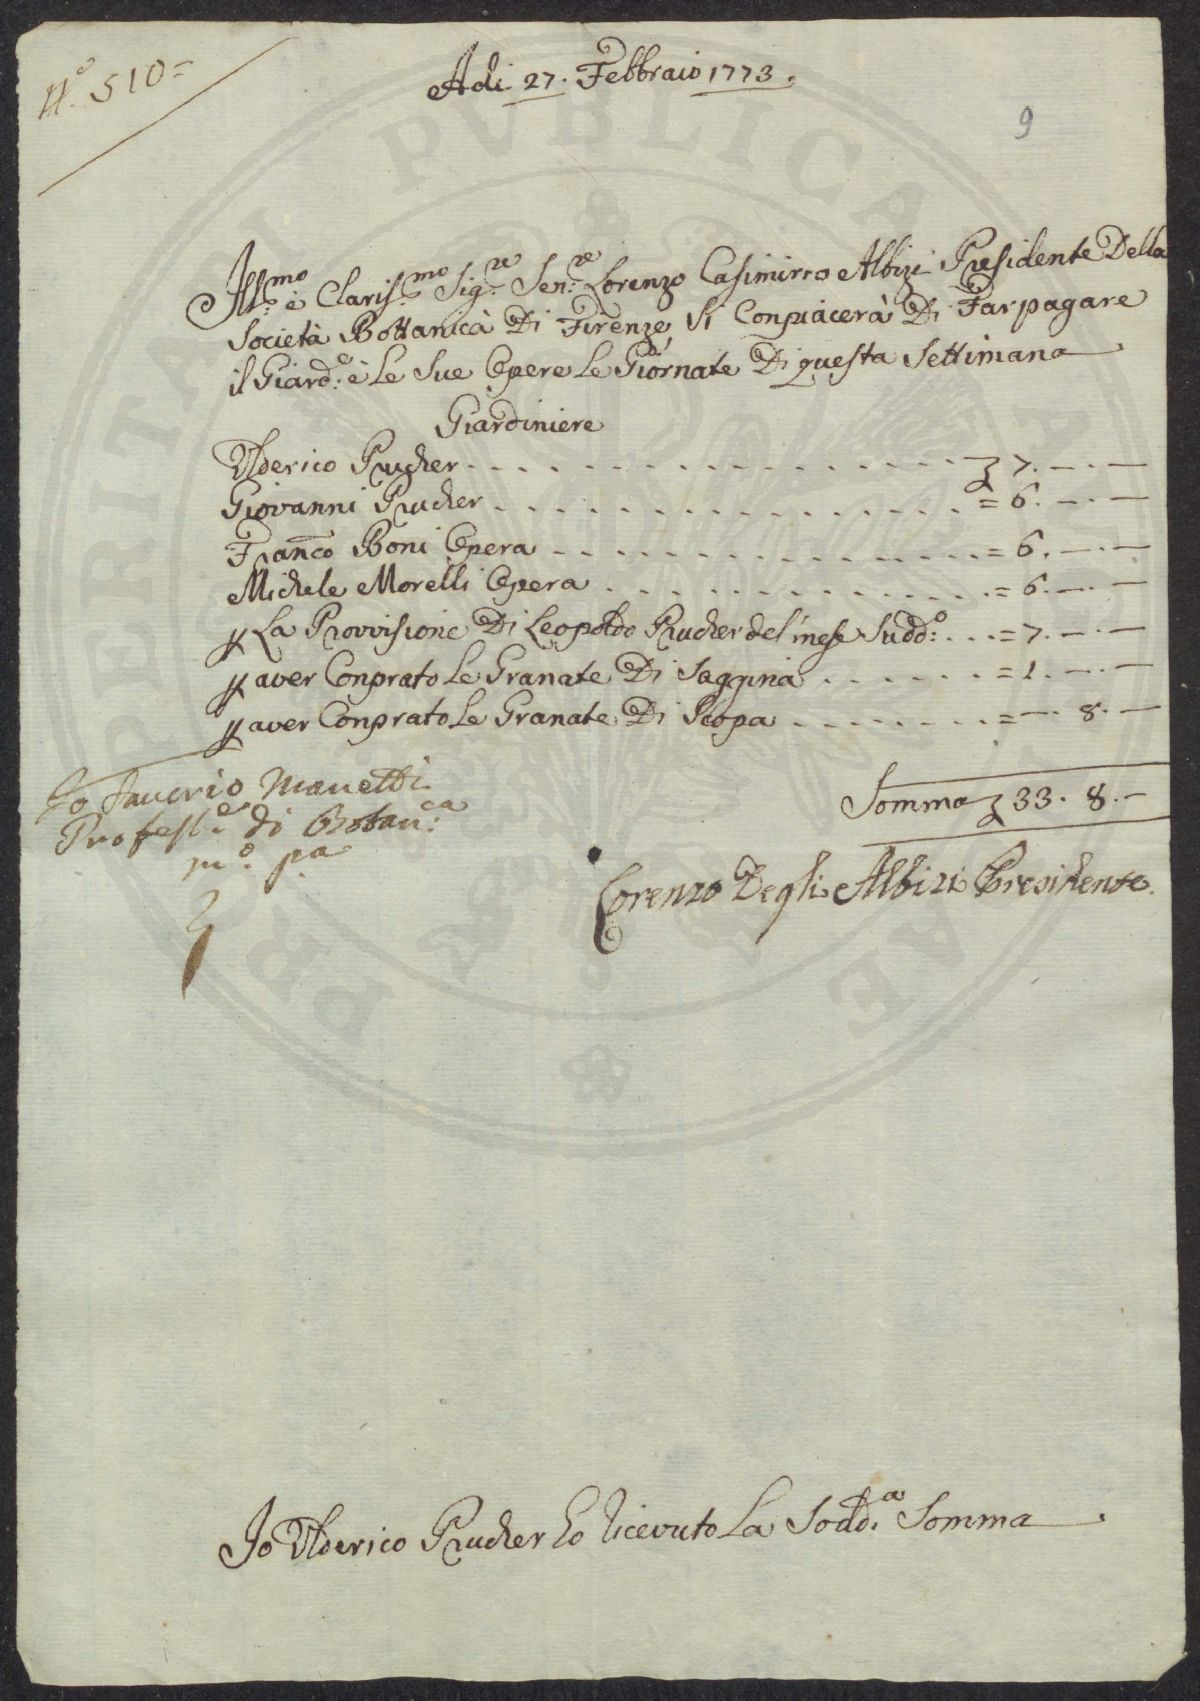 N.º 510=
Adi 27. Febbraio 1773.
9
Ill.mo è Claris.mo Sig.re Sen.re Lorenzo Casimirro Albizi Presidente Della
Società Bottanicà Di Firenze, Si Conpiacerà Di Far pagare
il Giard.º è Le Sue Opere Le Giornate Di questa Settimana
Giardiniere
Ulderico Prucher - - - - - - - - - - - - - - 7. — . —
Giovanni Prucher - - - - - - - - - - - - - - = 6. — . —
Franco Boni Opera - - - - - - - - - - - - = 6. — . —
Michele Morelli Opera - - - - - - - - - - = 6. — . —
p La Provvisione Di Leopoldo Prucher del mese Sudd.º . . . = 7. — . —
p aver Conprato Le Granate Di Saggina . . . . . . = 1. — . —
p aver Conprato Le Granate Di Scopa - - - - - - = — . 8. —
Somma 33. 8. —
Io Saverio Manetti
Profess.e di Botan.ca
m.º p.a
Lorenzo Degli Albizi Presidente.
Io Ulderico Prucher ho ricevuto La Sodd.a Somma .
PERITI PVBLICA AE PR